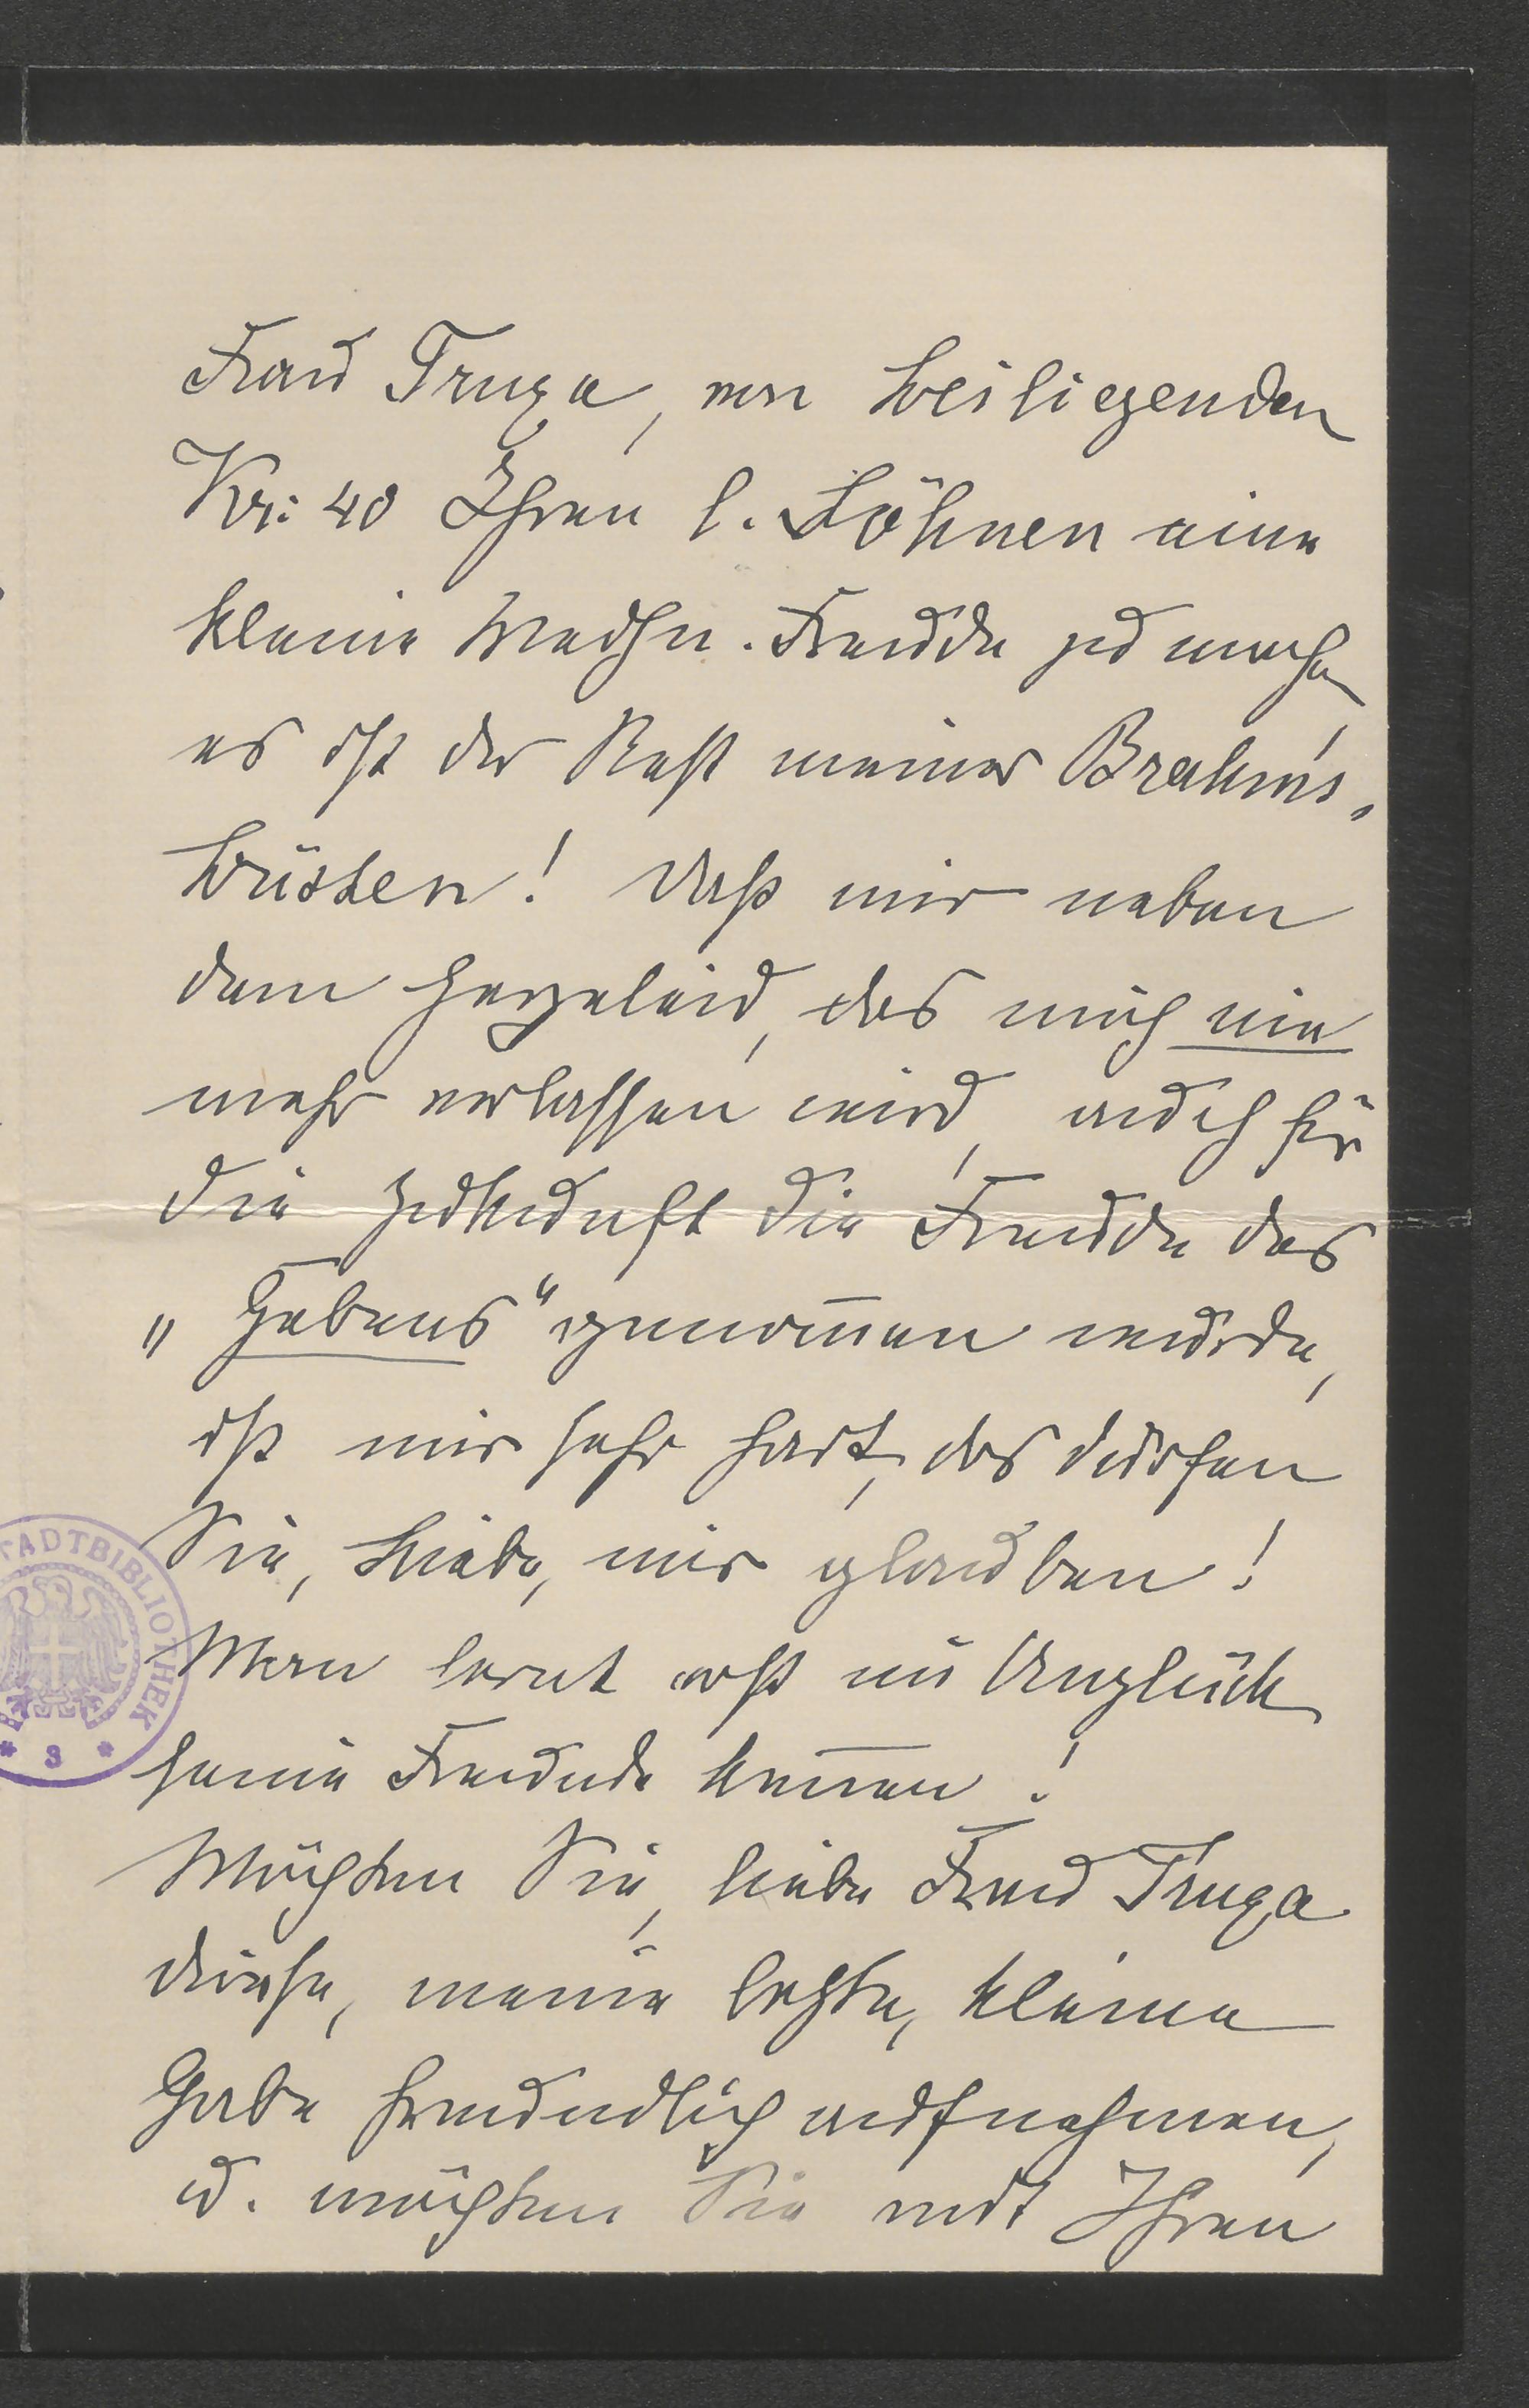 Frau Truxa, von beiliegenden
Kr: 40 Ihren l. Söhnen eine
kleine Weihn. Freude zu machen,
es ist der Rest meiner Brahms-
büsten! Daß mir neben
dem Herzeleid, das mich nie
mehr verlassen wird, auch für
die Zukunft die Freude des
„Gebens" genom̄en wurde,
ist mir sehr hart, das dürfen
Sie, Liebe, mir glauben!
Man lernt erst im Unglück
seine Freunde ken̄en!
Möchten Sie, liebe Frau Truxa
diese, meine letzte, kleine
Gabe freundlich aufnehmen,
u. möchten Sie mit Ihren
STADTBIBLIOTHEK
* 3 *